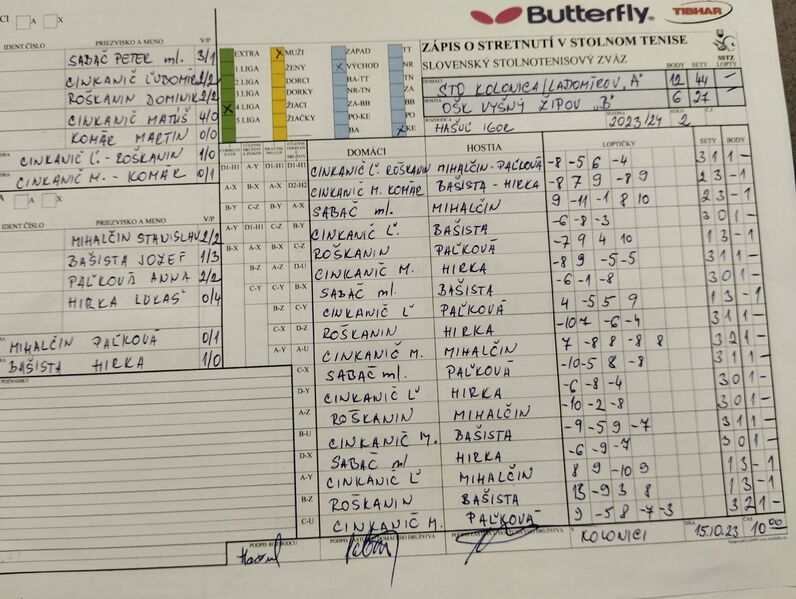 Butterfly
TIBHAR
CI A X
ZÁPIS O STRETNUTÍ V STOLNOM TENISE
SLOVENSKÝ STOLNOTENISOVÝ ZVÄZ
SSTZ
BODY SETY LOPTY
DOMÁCI STO KOLONICA/LADOMIROV „A" 12 44 -
HOSTIA OŠK VYŠNÝ ŽIPOV „B" 6 27 -
ROZHODCA HAŠUĽ IGOR SEZÓNA 2023/24 KOLO 2
EXTRA X MUŽI ZÁPAD TT
1.LIGA ŽENY X VÝCHOD NR
2.LIGA DORCI BA-TT TN
3.LIGA DORKY NR-TN ZA
X 4.LIGA ŽIACI ZA-BB BB
5.LIGA ŽIAČKY PO-KE PO
BA X KE
IDENT ČÍSLO PRIEZVISKO A MENO V/P
SABAČ PETER ml. 3/1
CINKANIČ ĽUBOMÍR 2/2
ROŠKANIN DOMINIK 2/2
CINKANIČ MATÚŠ 4/0
KOMÁR MARTIN 0/0
CINKANIČ Ľ. - ROŠKANIN 1/0
CINKANIČ M. - KOMÁR 0/1
A A X
IDENT ČÍSLO PRIEZVISKO A MENO V/P
MIHALČIN STANISLAV 2/2
BAŠISTA JOZEF 1/3
PAĽKOVÁ ANNA 2/2
HIRKA LUKÁŠ 0/4
MIHALČIN PAĽKOVÁ 0/1
BAŠISTA HIRKA 1/0
POZNÁMKY
DOMÁCI HOSTIA LOPTIČKY SETY BODY
CINKANIČ Ľ. ROŠKANIN MIHALČIN-PAĽKOVÁ -8 -5 6 -4 3 1 1 -
CINKANIČ M. KOMÁR BAŠISTA - HIRKA -8 7 9 -8 9 2 3 - 1
SABAČ ml. MIHALČIN 9 -11 -1 8 10 2 3 - 1
CINKANIČ Ľ. BAŠISTA -6 -8 -3 3 0 1 -
ROŠKANIN PAĽKOVÁ -7 9 4 10 1 3 - 1
CINKANIČ M. HIRKA -8 9 -5 -5 3 1 1 -
SABAČ ml. BAŠISTA -6 -1 -8 3 0 1 -
CINKANIČ Ľ PAĽKOVÁ 4 -5 5 9 1 3 - 1
ROŠKANIN HIRKA -10 7 -6 -4 3 1 1 -
CINKANIČ M. MIHALČIN 7 -8 8 -8 -8 3 2 1 -
SABAČ ml. PAĽKOVÁ -10 -5 8 -8 3 1 1 -
CINKANIČ Ľ HIRKA -6 -8 -4 3 0 1 -
ROŠKANIN MIHALČIN -10 -2 -8 3 0 1 -
CINKANIČ M. BAŠISTA -9 -5 9 -7 3 1 1 -
SABAČ ml HIRKA -6 -9 -7 3 0 1 -
CINKANIČ Ľ MIHALČIN 8 9 -10 9 1 3 - 1
ROŠKANIN BAŠISTA 13 -9 3 8 1 3 - 1
CINKANIČ M. PAĽKOVÁ 9 -5 8 -7 -3 3 2 1 -
PODPIS ROZHODCU
V KOLONICI DŇA 15.10.23 ČAS 10 00